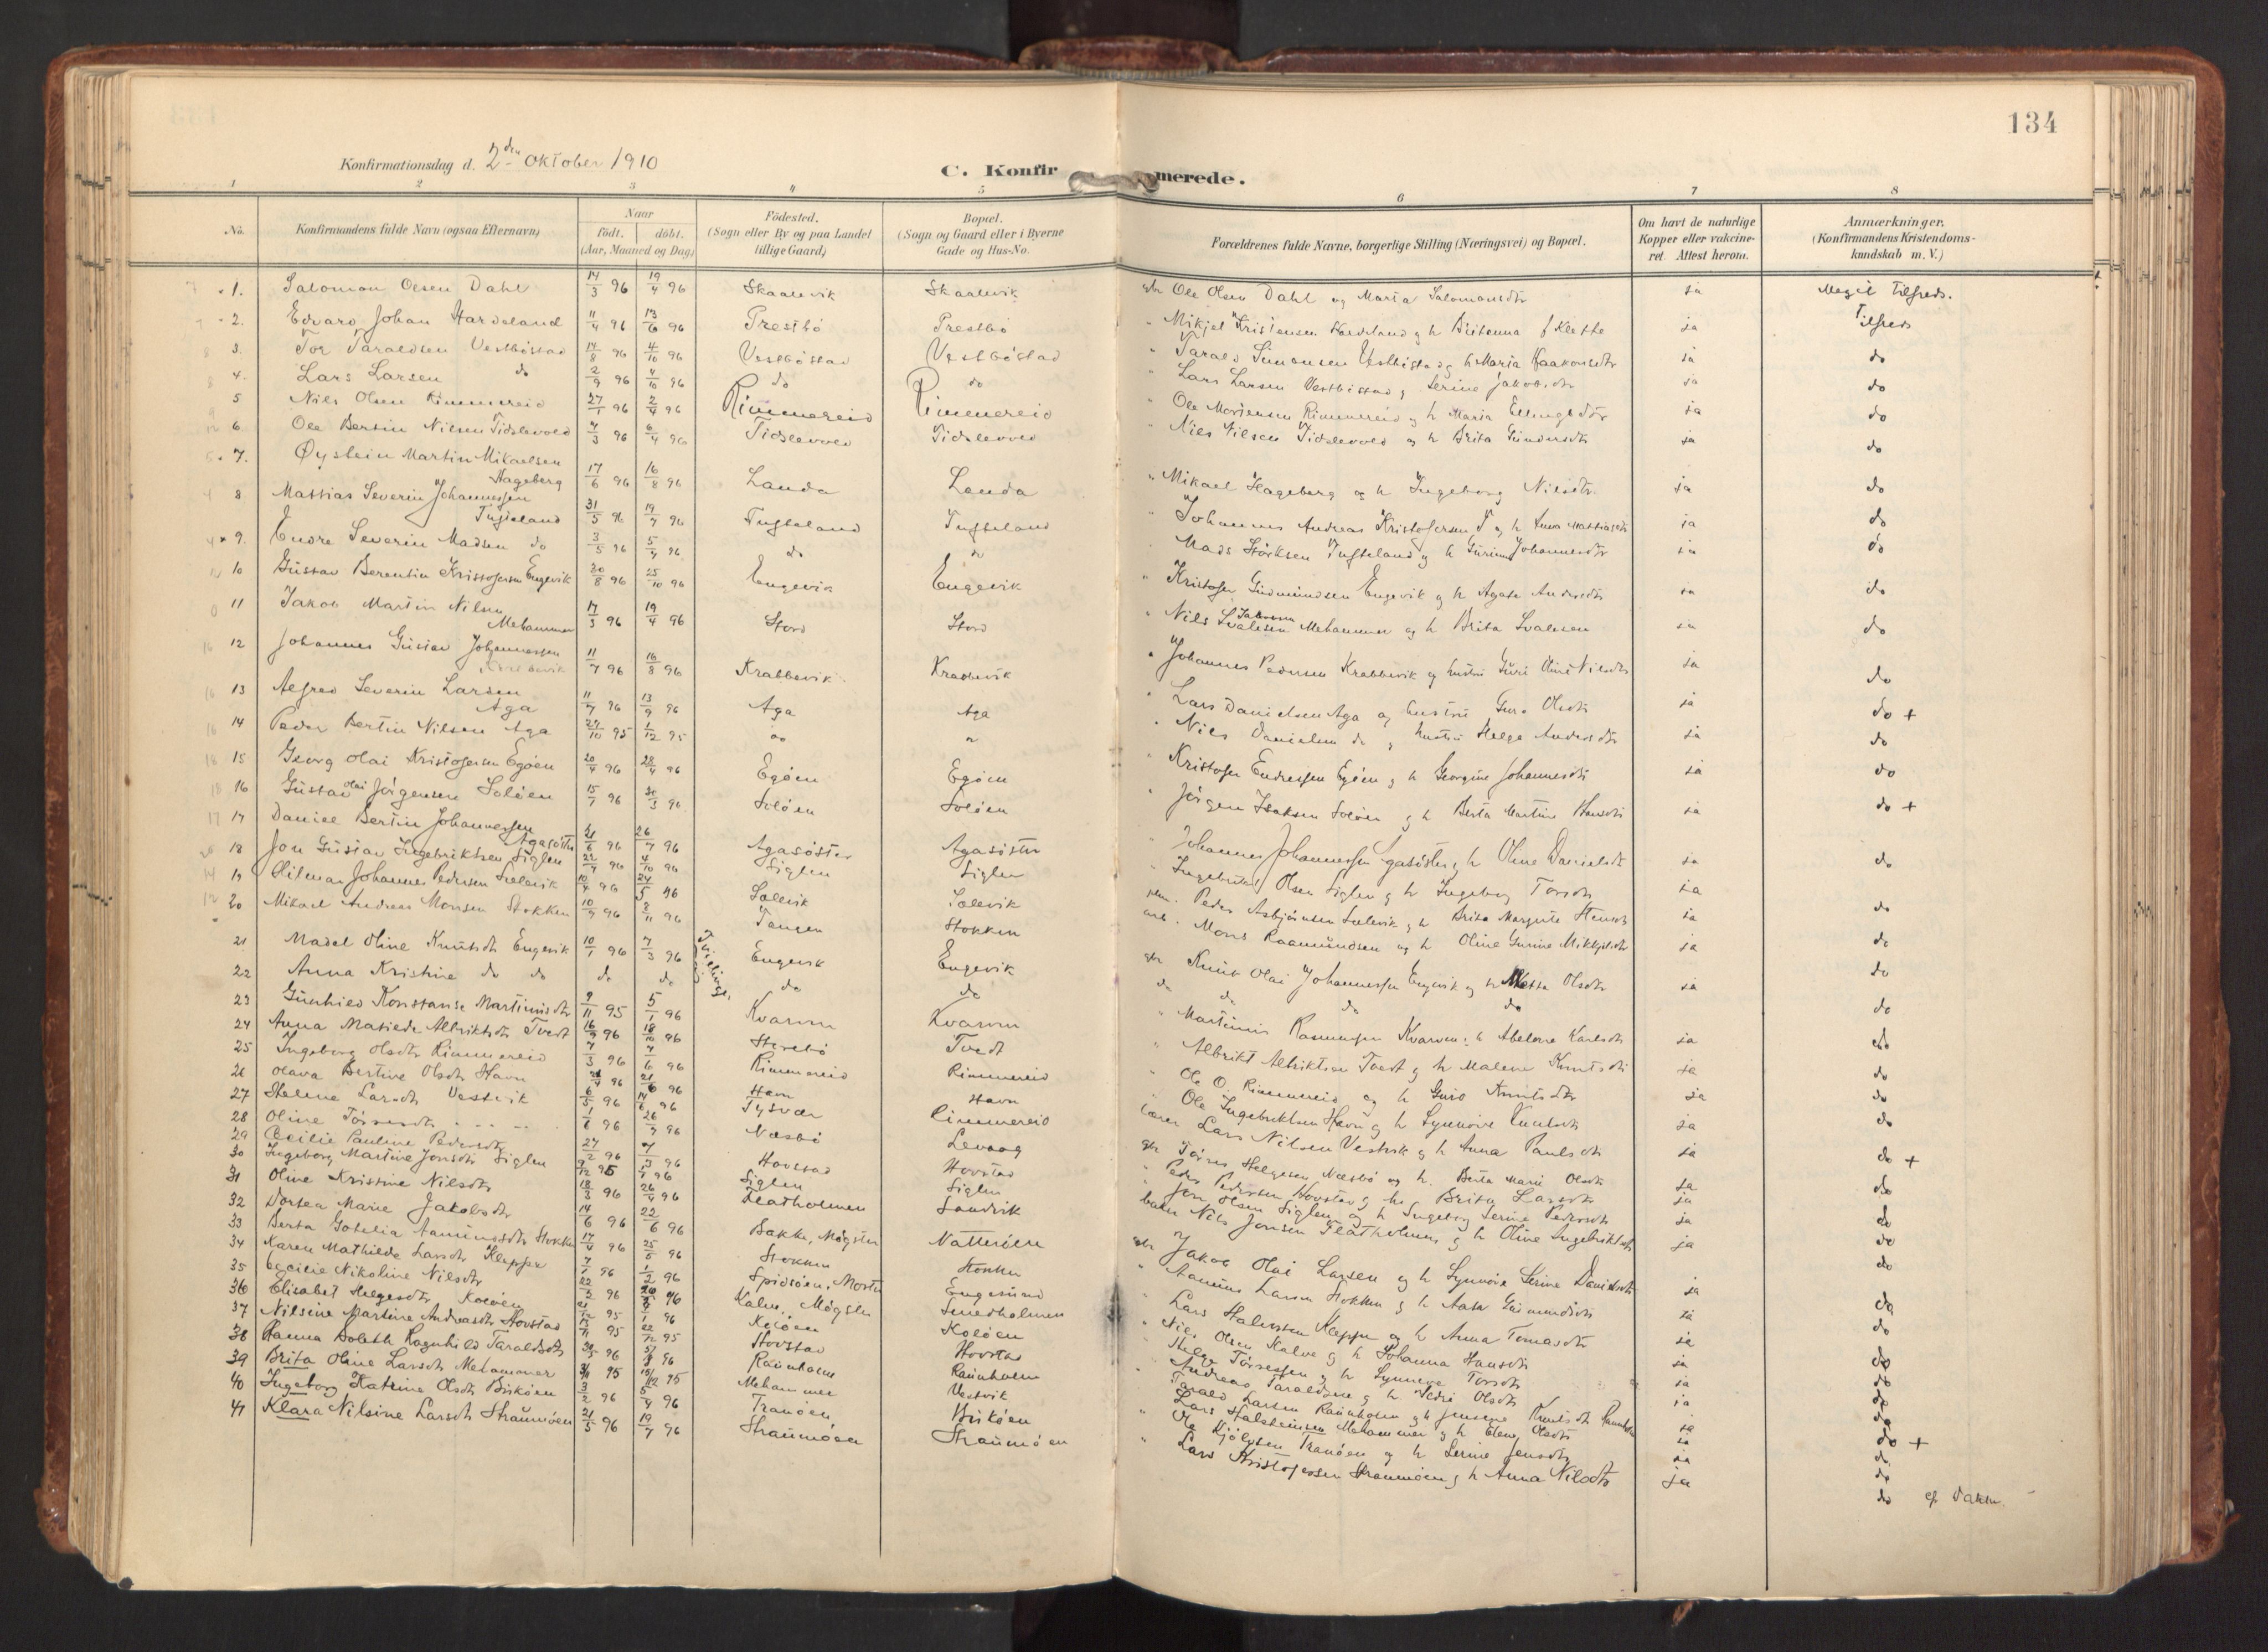 134
Konfirmationsdag d. 2den Oktober 1910
C. Konfirmerede.
1 2 3 4 5 6 7 8
No. Konfirmandens fulde Navn (ogsaa Efternavn) Naar födt. döbt. (Aar, Maaned og Dag) Födested. (Sogn eller By og paa Landet tillige Gaard) Bopæl. (Sogn og Gaard eller i Byerne Gade og Hus-No. Forældrenes fulde Navne, borgerlige Stilling (Næringsvei) og Bopæl. Om havt de naturlige Kopper eller vakcineret. Attest herom. Anmærkninger. (Konfirmandens Kristendomskundskab m. V.)
1. Salomon Olsen Dahl 14/3 96 19/4 96 Skaalevik Skaalevik gbr Ole Olsen Dahl og Maria Salomonsdtr ja Meget tilfreds.
2. Edvard Johan Hardeland 11/4 96 13/6 96 Prestbö Prestbö " Mikjel Kristensen Hardeland og h Britanna f Klette ja Tilfreds
3. Tor Taraldsen Vestböstad 14/8 96 4/10 96 Vestböstad Vestböstad " Tarald Simonsen Vestböstad og h Maria Haakonsdtr ja do
4. Lars Larsen do 2/9 96 4/10 96 do do " Lars Larsen Vestböstad og Serine Jakobsdtr ja do
5 Nils Olsen Rimmereid 27/1 96 2/4 96 Rimmereid Rimmereid " Ole Mortensen Rimmereid og h Maria Ellingsdtr ja do
6 Ole Bertin Nilsen Tidslevold 4/3 96 6/4 96 Tidslevold Tidslevold " Nils Nilsen Tidslevold og h Brita Gundersdtr ja do
7. Øystein Martin Mikaelsen Hageberg 17/6 96 16/8 96 Landa Landa " Mikael Hageberg og h Ingeborg Nilsdtr ja do
8 Mattias Severin Johannessen Tufteland 31/5 96 19/7 96 Tufteland Tufteland " Johannes Andreas Kristofersen T og h Anna Mattiasdtr ja do
9. Endre Severin Madsen do 3/5 96 5/7 96 do do Mads Störksen Tufteland og h Gurine Johannesdtr ja do
10 Gustav Berentin Kristofersen Engevik 20/8 96 25/10 96 Engevik Engevik " Kristofer Gudmundsen Engevik og h Agata Andersdtr ja do
11 Jakob Martin Nilsen Mehammer 17/3 96 19/4 96 Stord Stord " Nils Svalesen Mehammer og h Brita Svalesen ja do
12 Johannes Gustav Johannessen Krabbevik 11/7 96 16/8 96 Krabbevik Krabbevik " Johannes Pedersen Krabbevik og hustru Guri Oline Nilsdtr ja do
13 Alfred Severin Larsen Aga 11/7 96 13/9 96 Aga Aga " Lars Danielsen Aga og hustru Guro Olsdtr ja do +
14 Peder Bertin Nilsen Aga 24/10 95 1/12 95 do do " Nils Danielsen do og hustru Helga Andersdtr ja do
15 Georg Olai Kristofersen Egöen 20/4 96 28/4 96 Egöen Egöen " Kristofer Endressen Egöen og h Georgine Johannesdtr ja do
16 Gustav Olai Jörgensen Solöen 15/1 96 Solöen Solöen " Jörgen Isaksen Solöen og h Berta Martine Hansdtr ja do +
17 Daniel Bertin Johannessen Agasöster 21/6 96 26/7 96 Agasöster Agasöster " Johannes Johannessen Agasöster og h Oline Danielsdtr ja do
18 Jon Gustav Ingebriktsen Siglen 22/7 96 4/10 96 Siglen Siglen " Ingebrikt Olsen Siglen og h Ingeborg Torsdtr ja do
19 Hilmar Johannes Pedersen Selevik 10/4 96 24/5 96 Selevik Selevik Peder Asbjörnsen Selevik og h Brita Margrete Hansdtr ja do
20 Mikael Andreas Monsen Stokken 10/9 96 8/11 96 Tangen Stokken arb. Mons Raamundsen og h Oline Gurine Mikkjelsdtr ja do
21 Madel Oline Knutsdtr Engevik 10/1 96 7/3 96 Tvillinger Engevik Engevik gbr Knut Olai Johannessen Engevik og h Metta Olsdtr ja do
22 Anna Kristine do do do do do do do do do do
23 Gunhild Konstanse Martinusdtr 9/11 95 5/1 96 Kvarven Kvarven " Martinus Rasmussen Kvarven og h Abelone Karlsdtr ja do
24 Anna Matilde Albriktsdtr Tvedt 16/9 96 18/10 96 Tvedt " Albrikt Albriktsen Tvedt og h Malene Knutsdtr ja do
25 Ingeborg Olsdtr Rimmereid 7/3 96 7/6 96 Rimmereid Rimmereid " Ole O. Rimmereid og h Guro Knutsdtr ja do
26 Olava Bertine Olsdtr Havn 21/4 96 21/6 96 Havn Havn " Ole Ingebriktsen Havn og h Synnöve Knutsdtr ja do
27 Helene Larsdtr Vestvik 6/5 96 14/6 96 Tysvær Rimmereid Lars Nilsen Vestvik og h Anna Paulsdtr ja do +
28 Oline Törresdtr 1/6 96 26/7 96 Næsbö Levaag gbr Törres Helgesen Næsbö og h. Berta Marie Olsdtr ja do
29 Cecilie Pauline Pedersdtr 27/2 96 4/5 96 Hovstad Hovstad " Peder Pedersen Hovstad og h. Brita Larsdtr ja do
30 Ingeborg Martine Jonsdtr Siglen 9/12 95 96 Siglen Siglen " Jon Olsen Siglen og h Ingeborg Serine Pedersdtr ja do
31 Oline Kristine Nilsdtr 18/3 96 26/4 96 Flatholmen Sandvik Nils Jonsen Flatholmen og h Oline Ingebriktsdtr ja do
32 Dortea Marie Jakobsdtr 14/6 96 22/6 96 Bakke, Mögster Nattersöen gbr Jakob Olai Larsen og h Synnöve Serine Danielsdtr ja do
33 Berta Gotelia Aamundsdtr Stokken 17/4 96 25/5 96 Stokken Stokken " Aamund Larsen Stokken og h Aasa Gudmundsdtr ja do
34 Karen Mathilde Larsdtr Kleppe 7/1 96 1/2 96 Spidsöen, Moster Engesund " Lars Halvorsen Kleppe og h Anna Tomasdtr ja do
35 Cecilie Nikoline Nilsdtr 22/2 96 96 Kalve, Mögster Smedholmen " Nils Olsen Kalve og h Johanna Hansdtr ja do
36 Elisabet Helgesdtr Kolöen 21/12 95 96 Kolöen Kolöen Helge Törressen og h Synneva Torsdtr ja do
37 Nilsine Martine Andreasdtr Hovstad 95 22/12 95 Hovstad Hovstad Andreas Taraldsen og h Sedsi Olsdtr ja do
38 Hanna Bolette Ragnhild Taraldsdtr 96 96 Raunholm Raunholm Tarald Larsen Raunholm og h Jensine Knutsdtr Raunholm ja do
39 Brita Oline Larsdtr Mehammer 95 15/12 95 Mehammer Vestvik Lars Halsteinsen Mehammer og h Elene Olsdtr ja do +
40 Ingeborg Katrine Olsdtr Buköen 3/2 96 5/4 96 Tranöen Buköen Ole Kjölvsen Tranöen og h Serine Jensdtr ja do
41 Klara Nilsine Larsdtr Straumöen 21/5 96 19/7 96 Straumöen Straumöen " Lars Kristofersen Straumöen og h Anna Nilsdtr ja do